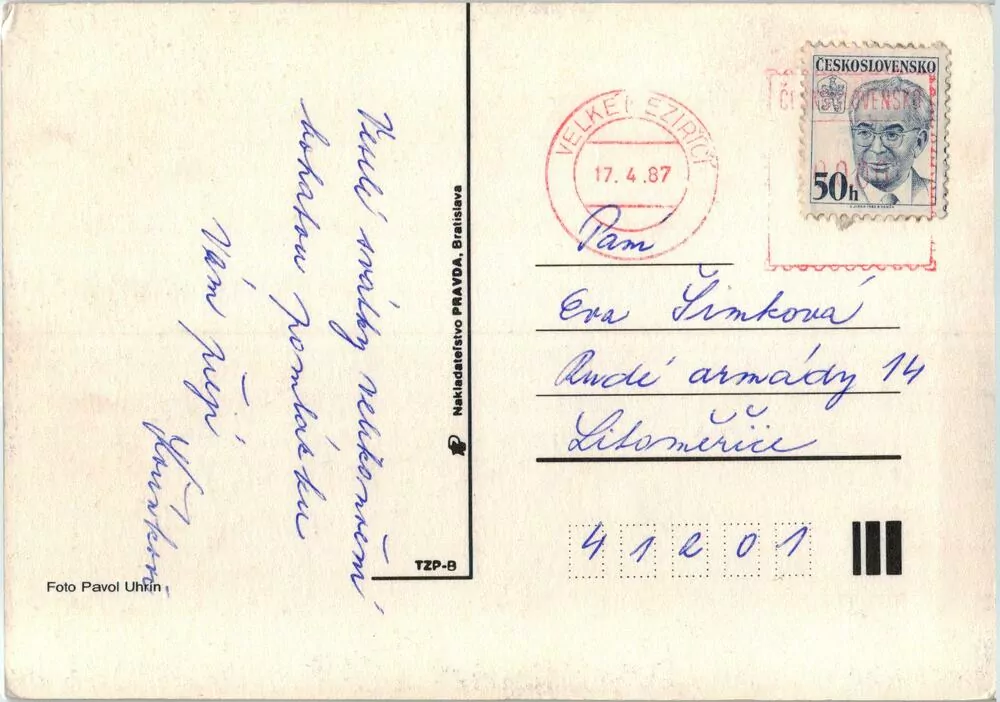 Veselé svátky velikonoční
bohatou pomlázku
Vám přejí
Nakladateľstvo PRAVDA, Bratislava
TZP-B
Foto Pavol Uhrin
VELKÉ MEZIŘÍČÍ
17. 4. 87
ČESKOSLOVENSKO
ČESKOSLOVENSKO
50h
Paní
Eva Šimková
Rudé armády 14
Litoměřice
41201